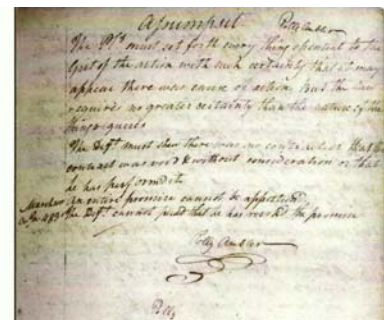 Assumpsit
The Pltf. must set forth every thing essential to the
Gist of the action with such certainty that it may
appear there was cause of action, But the law
requires no greater certainty than the nature of the
thing requires
The Deft. must shew there was no contract or that the
contract was void & without consideration or that
he has performed it
an entire promise cannot be apportioned
The Deft. cannot plead that he has the promise